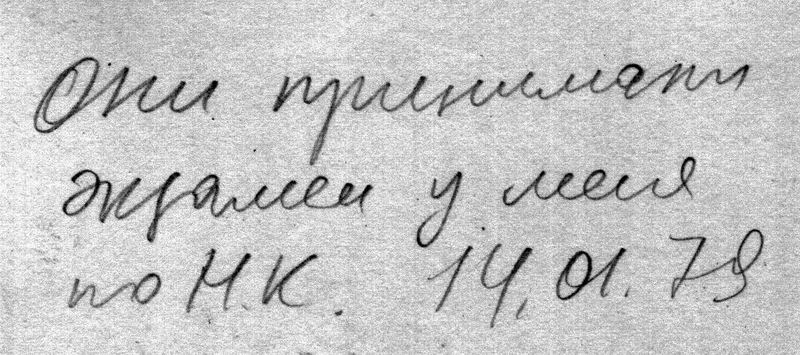 Они принимали
экзамен у меня
по Н.К. 14.01.79